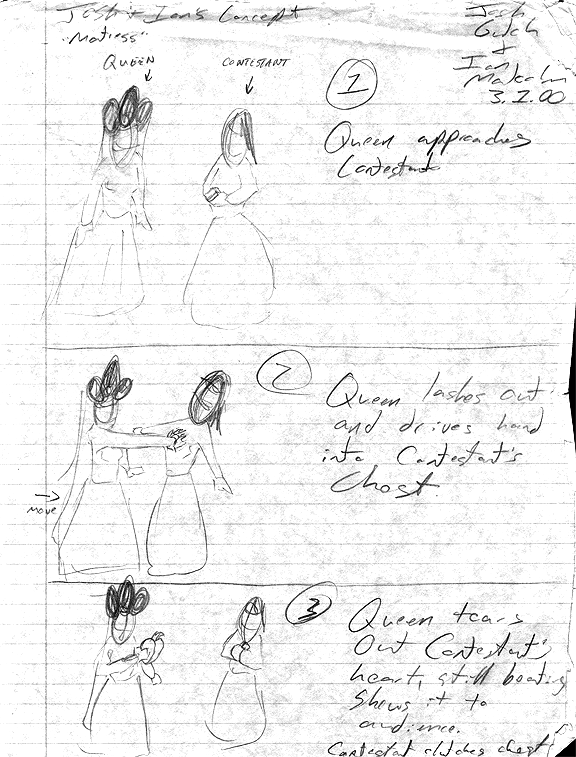 Josh + Ian's Concept
"Matress"
Josh
Gulch
+
Ian
Malcolm
3.2.00
QUEEN
CONTESTANT
1
Queen approaches
Contestant
2
Queen lashes out
and drives hand
into Contestant's
Chest.
move
3
Queen tears
Out Contestant's
heart, still beating
Shows it to
audience.
Contestant clutches chest